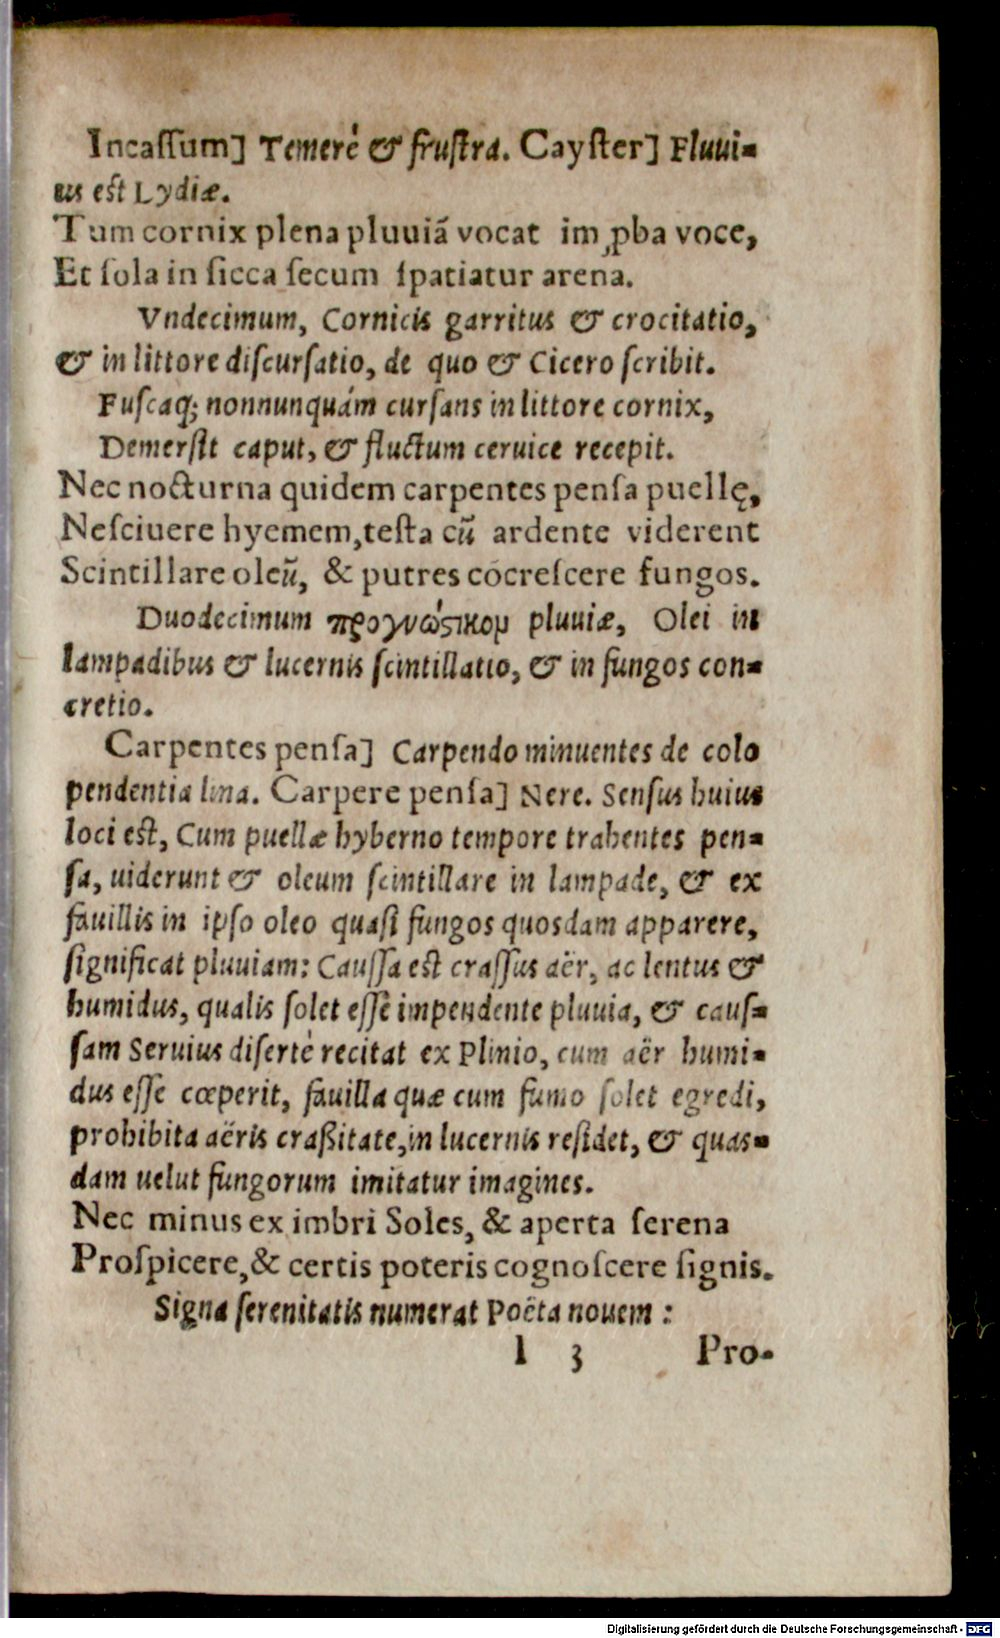 Incaſſum] Temerè & fruſtra. Cayſter] Fluui-
us eſt Lydiæ.
Tum cornix plena pluuiã vocat im ꝓba voce,
Et ſola in ſicca ſecum ſpatiatur arena.
Vndecimum, Cornicis garritus & crocitatio,
& in littore diſcurſatio, de quo & Cicero ſcribit.
Fuſcaq; nonnunquám curſans in littore cornix,
Demerſit caput, & fluctum ceruice recepit.
Nec nocturna quidem carpentes penſa puellę,
Neſciuere hyemem, teſta cũ ardente viderent
Scintillare oleũ, & putres cõcreſcere fungos.
Duodecimum προγνώϛικομ pluuiæ, Olei in
lampadibus & lucernis ſcintillatio, & in fungos con-
cretio.
Carpentes penſa] Carpendo minuentes de colo
pendentia lina. Carpere penſa] Nere. Senſus huius
loci eſt, Cum puellæ hyberno tempore trahentes pen-
ſa, uiderunt & oleum ſcintillare in lampade, & ex
fauillis in ipſo oleo quaſi fungos quosdam apparere,
ſignificat pluuiam: Cauſſa eſt craſſus aër, ac lentus &
humidus, qualis ſolet eſſe impendente pluuia, & cauſ-
ſam Seruius diſertè recitat ex Plinio, cum aër humi-
dus eſſe cœperit, fauilla quæ cum fumo ſolet egredi,
prohibita aëris craßitate, in lucernis reſidet, & quas-
dam uelut fungorum imitatur imagines.
Nec minus ex imbri Soles, & aperta ſerena
Proſpicere, & certis poteris cognoſcere ſignis.
Signa ſerenitatis numerat Poëta nouem :
l 3 Pro-
Digitalisierung gefördert durch die Deutsche Forschungsgemeinschaft - DFG